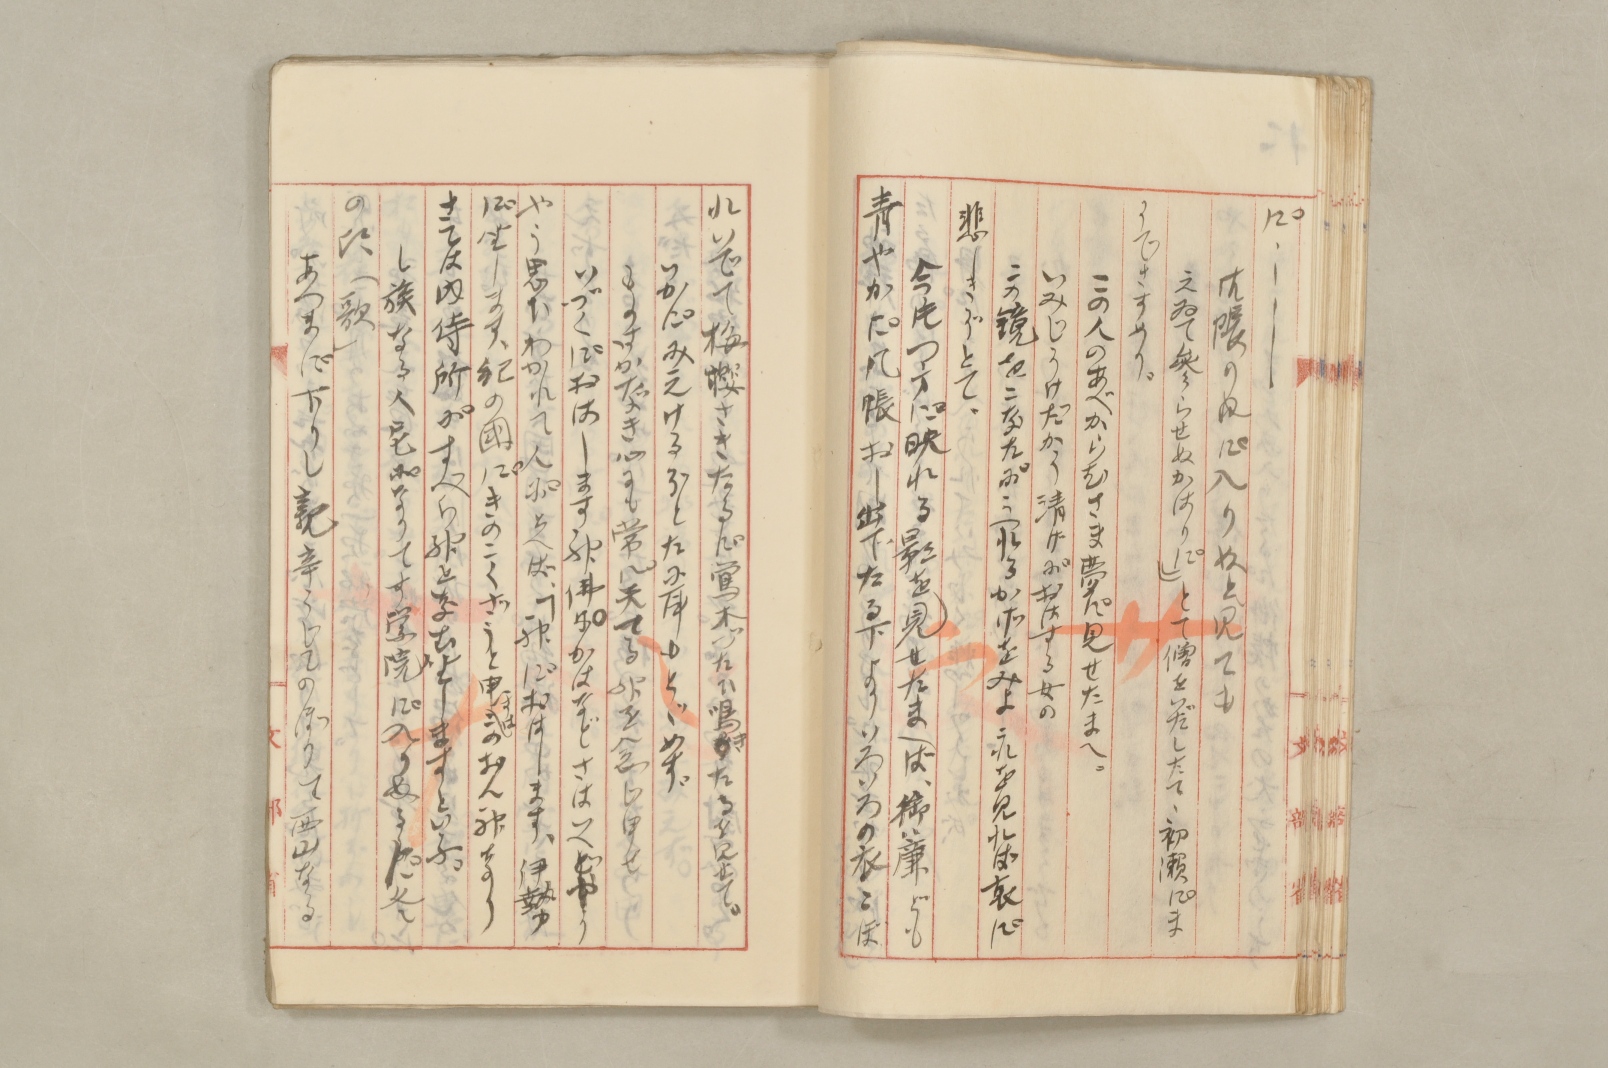 に、ーーー
几帳のぬに入りぬと見ても
えゐて参らせぬかはりに」とて僧を出だしたてゝ初瀬にま
うでさすめり。
この人のあべからむさま夢に見せたまへ。
いみじうけだかう清げがおはする女の
この鏡をこなたがうつれるかげをみよ これを見れば哀に
悲しきぞとて、
今片つ方に映れる影を見せたまへば、御簾ども
青やかに几帳おし出下たる下よりいろいろの衣こぼ
れいでて梅櫻さきたるに鶯木づたひ鳴きたるを見せて。
いかにみえけるぞとだに耳もとゞめず。
ものはかなき心にも常に天てる神を念じ申せ
いづくにおはします神佛にかはなどさはいへどやう
やう思ひわかれて人がとへば、「神におはします、伊勢に
に坐します、紀の國にきのこくざうと申きのおん神なり
さては内侍所がすべら神となむ坐しますといふ。
し族なる人尼がなりてす学院に入りぬるに冬
の頃(歌)
あづまに下りし親辛うじてのぼりて西山なる
文部省